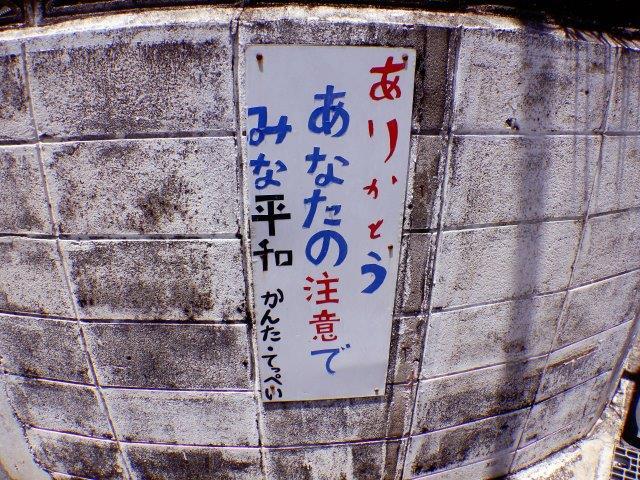 ありかとう
あなたの注意で
みな平和
かんた・てっぺい